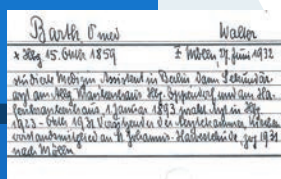 Barth Dr med Walter
* Hbg 15. Oktbr 1859 ‡ Mölln, 27. Juni 1932
studierte Medizin Assistent in Berlin dann Sekundär
arzt am Allg Krankenhaus Hbg. Eppendorf und am Ha-
fenkrankenhaus. 1. Januar 1893 prakt Arzt in Hbg.
1923 - Oktbr 1931 Vorsitzender der Ärztekammer, Kirchen-
vorstandsmitglied an St Johannis-Harvestehude, zog 1931
nach Mölln